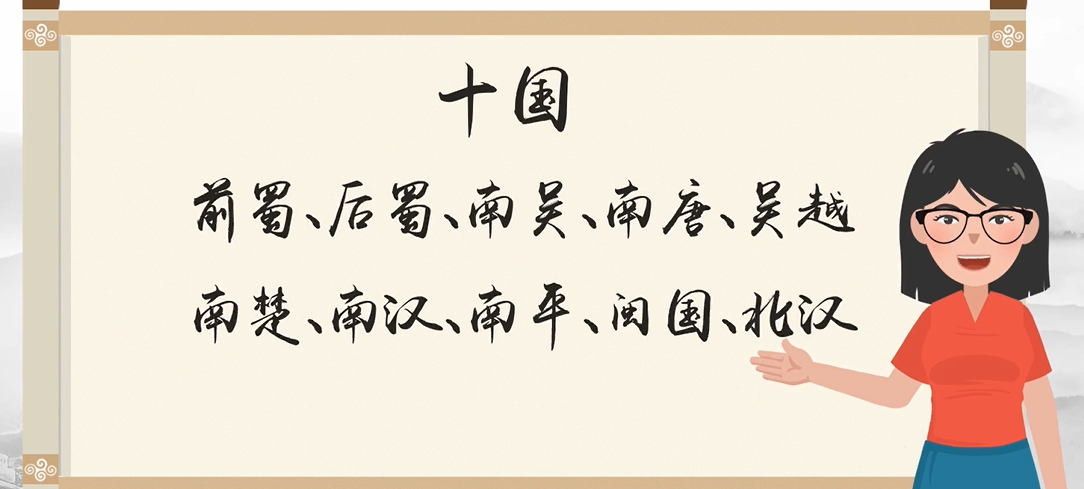 十国
前蜀、后蜀、南吴、南唐、吴越
南楚、南汉、南平、闽国、北汉